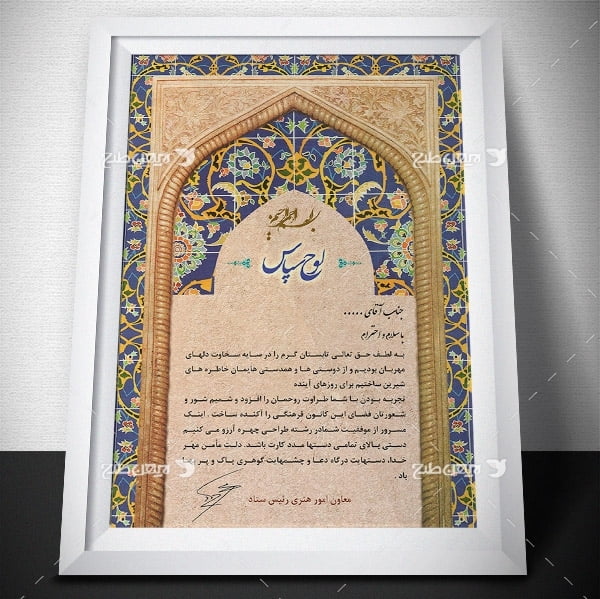 بسم الله الرحمن الرحیم
لوح سپاس
جناب آقای .....
با سلام و احترام
به لطف حق تعالی تابستان گرم را در سایه سخاوت دلهای
مهربان بودیم و از دوستی ها و همدستی هایمان خاطره های
شیرین ساختیم برای روزهای آینده
تجربه بودن با شما طراوت روحمان را افزود و شمیم شور و
شعورتان فضای این کانون فرهنگی را آکنده ساخت . اینک
مسرور از موفقیت شمادر رشته طراحی چهره آرزو می کنیم
دستی بالای تمامی دستها مدد کارت باشد. دلت مأمن مهر
خدا، دستهایت درگاه دعا و چشمهایت گوهری پاک و پر بها
باد .
معاون امور هنری رئیس ستاد